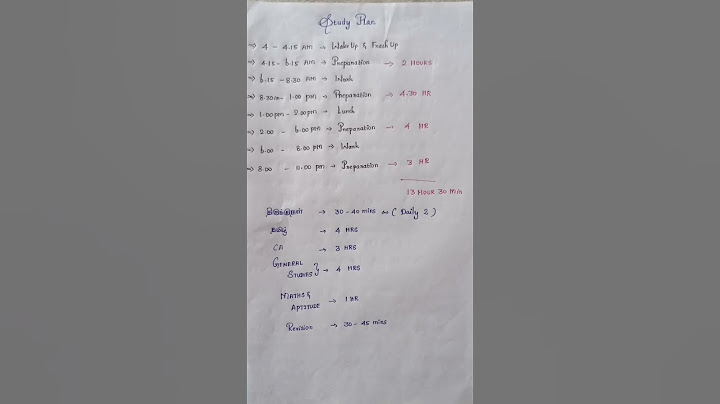 Study Plan
⇒ 4 - 4.15 AM → Wake Up & Fresh Up
⇒ 4.15 - 6.15 AM → Preparation → 2 HOURS
⇒ 6.15 - 8.30 AM → Work
⇒ 8.30 AM - 1.00 pm → Preparation → 4.30 HR
⇒ 1.00 pm - 2.00 pm → Lunch
⇒ 2.00 - 6.00 pm → Preparation → 4 HR
⇒ 6.00 - 8.00 pm → Work
⇒ 8.00 - 11.00 pm → Preparation → 3 HR
13 HOUR 30 MIN
திருக்குறள் → 30 - 40 mins ∞ ( Daily 2 )
தமிழ் → 4 HRS
CA → 3 HRS
GENERAL
STUDIES } → 4 HRS
MATHS &
APTITUDE → 1 HR
Revision → 30 - 45 mins